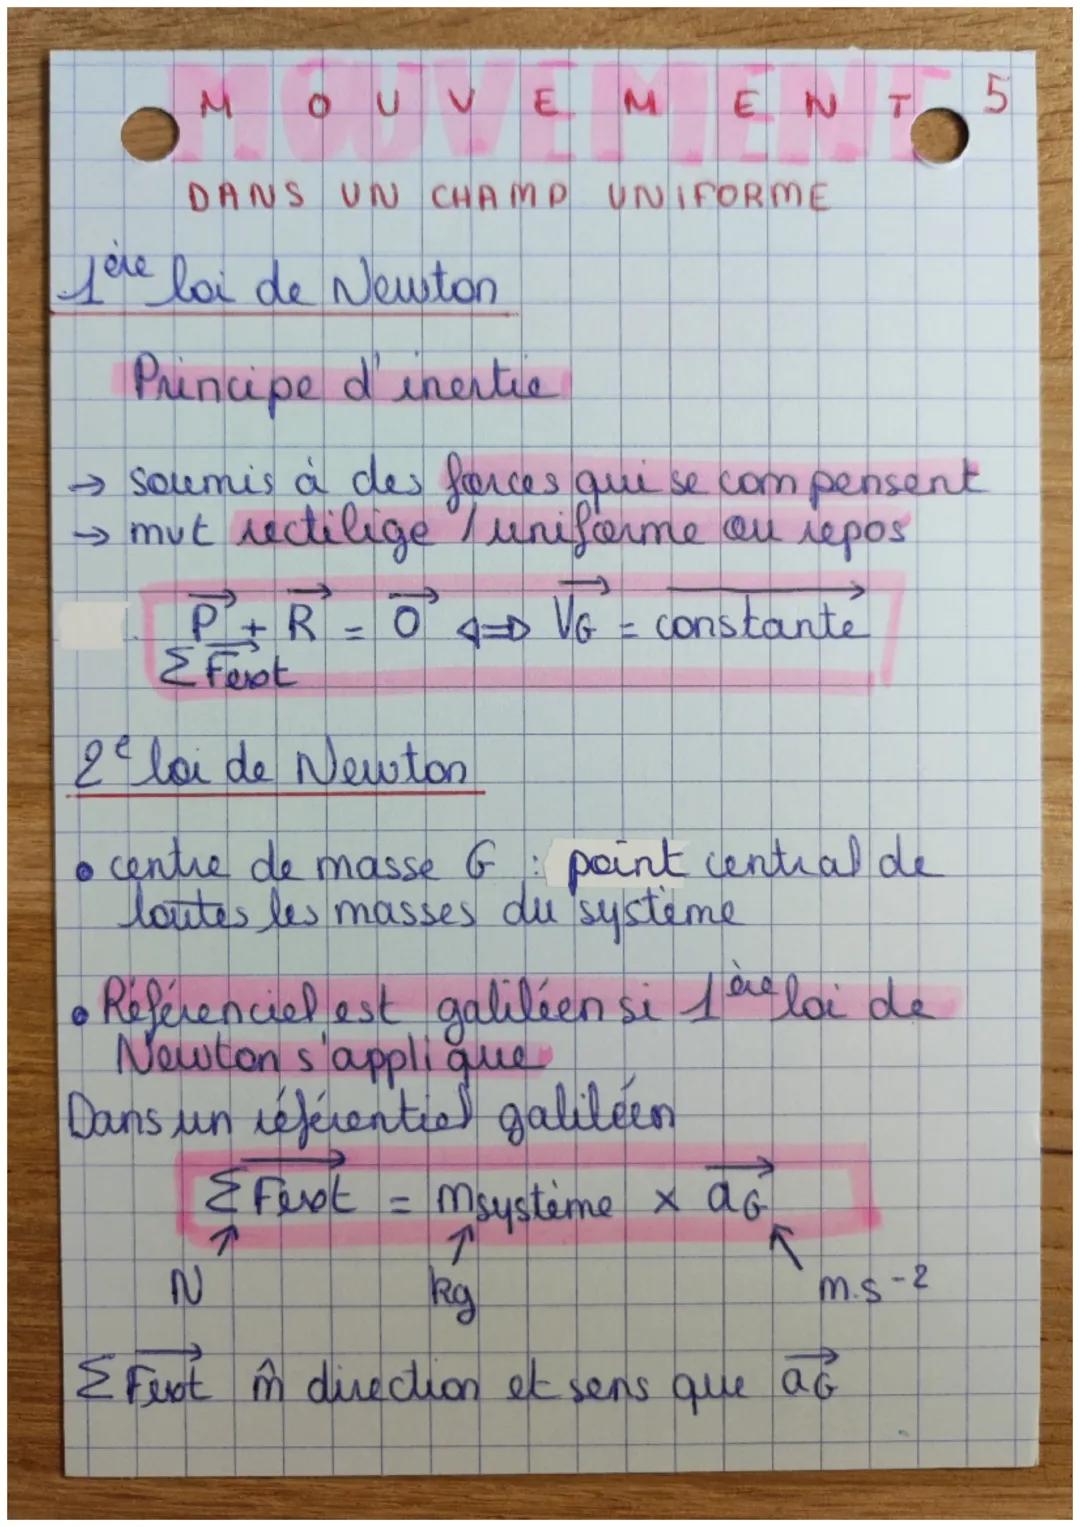 MOUVEMENT 5
DANS UN CHAMP UNIFORME
1ère loi de Newton
Principe d'inertie
→ soumis à des forces qui se compensent
→ mvt rectilige / uniforme ou repos
P⃗ + R⃗ = 0⃗ ⇔ V⃗G = constante⃗
Σ F⃗ext
2e loi de Newton
• centre de masse G : point central de
toutes les masses du système
• Référenciel est galiléen si 1ère loi de
Newton s'applique
Dans un référentiel galiléen
Σ F⃗ext = msystème × a⃗G
N kg m.s-2
Σ F⃗ext m̂ direction et sens que a⃗G